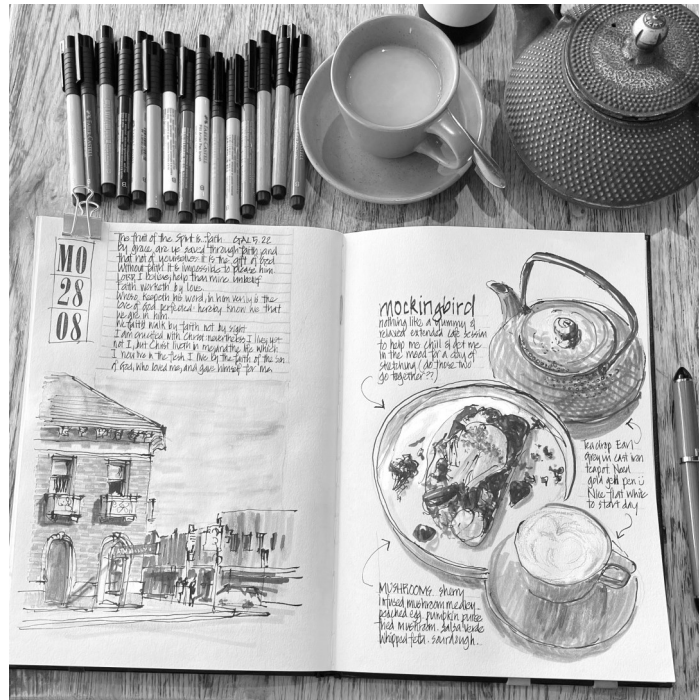 MO
28
08
The fruit of the Spirit is faith GAL 5.22
By grace are ye saved through faith and
that not of yourselves it is the gift of God
Without faith it is impossible to please him.
LORD I believe, help thou mine unbelief
Faith worketh by love.
Whoso keepeth his word, in him verily is the
love of God perfected: hereby know we that
we are in him.
We walk by faith not by sight
I am crucified with Christ: nevertheless I live; yet
not I, but Christ liveth in me: and the life which
I now live in the flesh I live by the faith of the son
of God, who loved me, and gave himself for me.
mockingbird
nothing like a yummy &
relaxed extended cafe session
to help me chill & get me
in the mood for a day of
sketching (do those two
go together??)
Tea drop Earl
Grey in cast iron
teapot. Need
gold gel pen
Nike flat white
to start day
MUSHROOMS. sherry
infused mushroom medley.
poached egg. pumpkin puree
fried mushroom. salsa verde
whipped feta. sourdough.